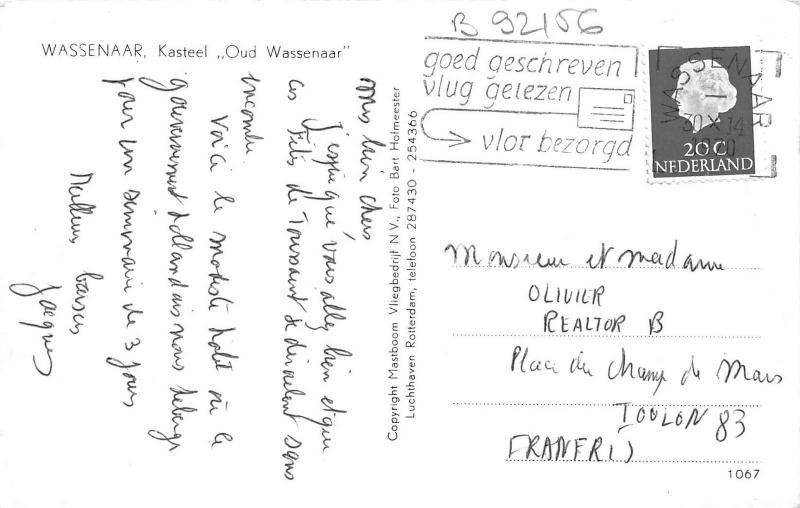 B 92156
WASSENAAR, Kasteel „Oud Wassenaar"
goed geschreven
vlug gelezen
vlot bezorgd
WASSENAAR
30 X 14
1970
20 C
NEDERLAND
mes bien chers
J'espère que vous allez bien et que
ces Fêtes de Toussaint se déroulent sans
encombre.
Voici le modeste hotel où le
gouvernement hollandais nous héberge
pour un séminaire de 3 jours
Meilleurs baisers
Jacques
Copyright Mastboom Vliegbedrijf N V., Foto Bart Hofmeester
Luchthaven Rotterdam, telefoon 287430 - 254366
Monsieur et madame
OLIVIER
REALTOR B
Place du Champ de Mars
TOULON 83
1067